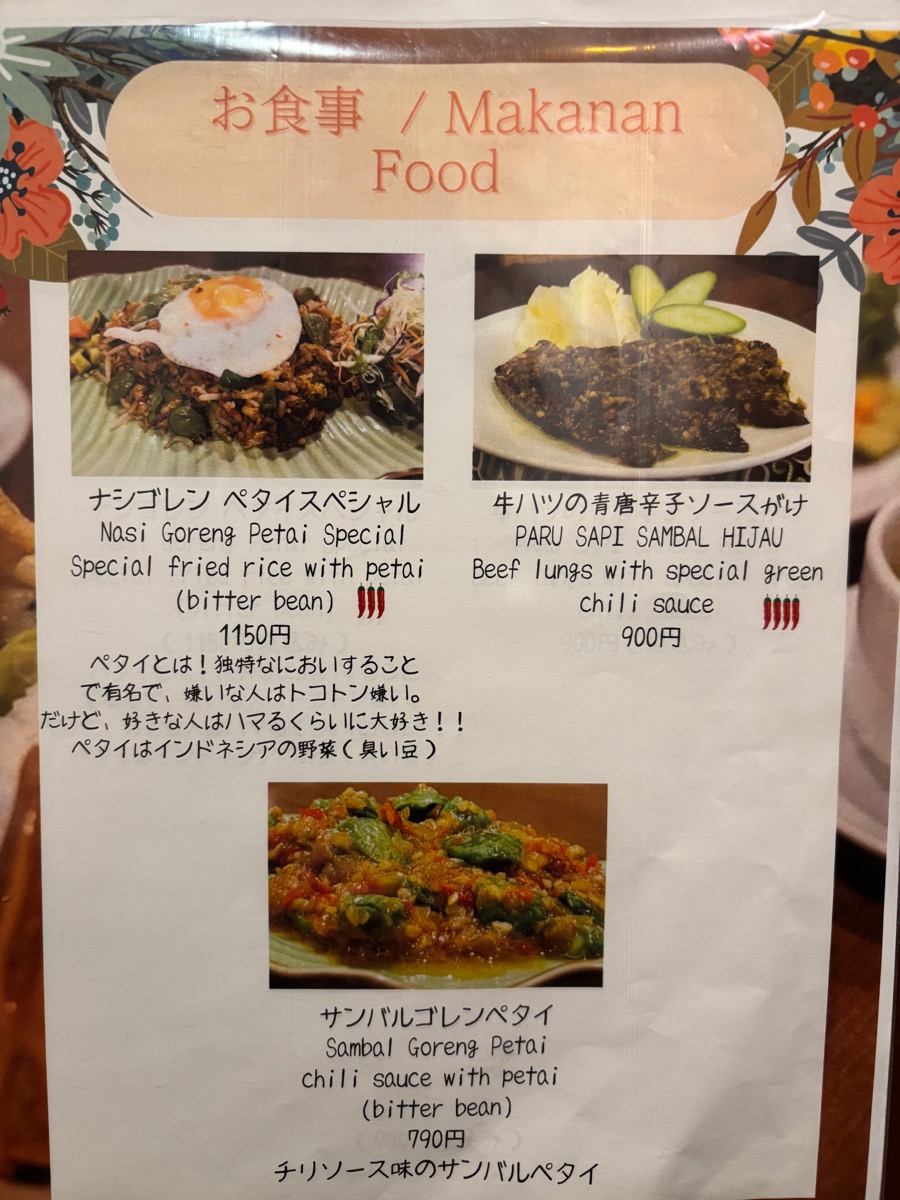 お食事 / Makanan
Food
ナシゴレン ペタイスペシャル
Nasi Goreng Petai Special
Special fried rice with petai
(bitter bean)
1150円
ペタイとは！独特なにおいすること
で有名で、嫌いな人はトコトン嫌い。
だけど、好きな人はハマるくらいに大好き！！
ペタイはインドネシアの野菜(臭い豆)
牛ハツの青唐辛子ソースがけ
PARU SAPI SAMBAL HIJAU
Beef lungs with special green
chili sauce
900円
サンバルゴレンペタイ
Sambal Goreng Petai
chili sauce with petai
(bitter bean)
790円
チリソース味のサンバルペタイ